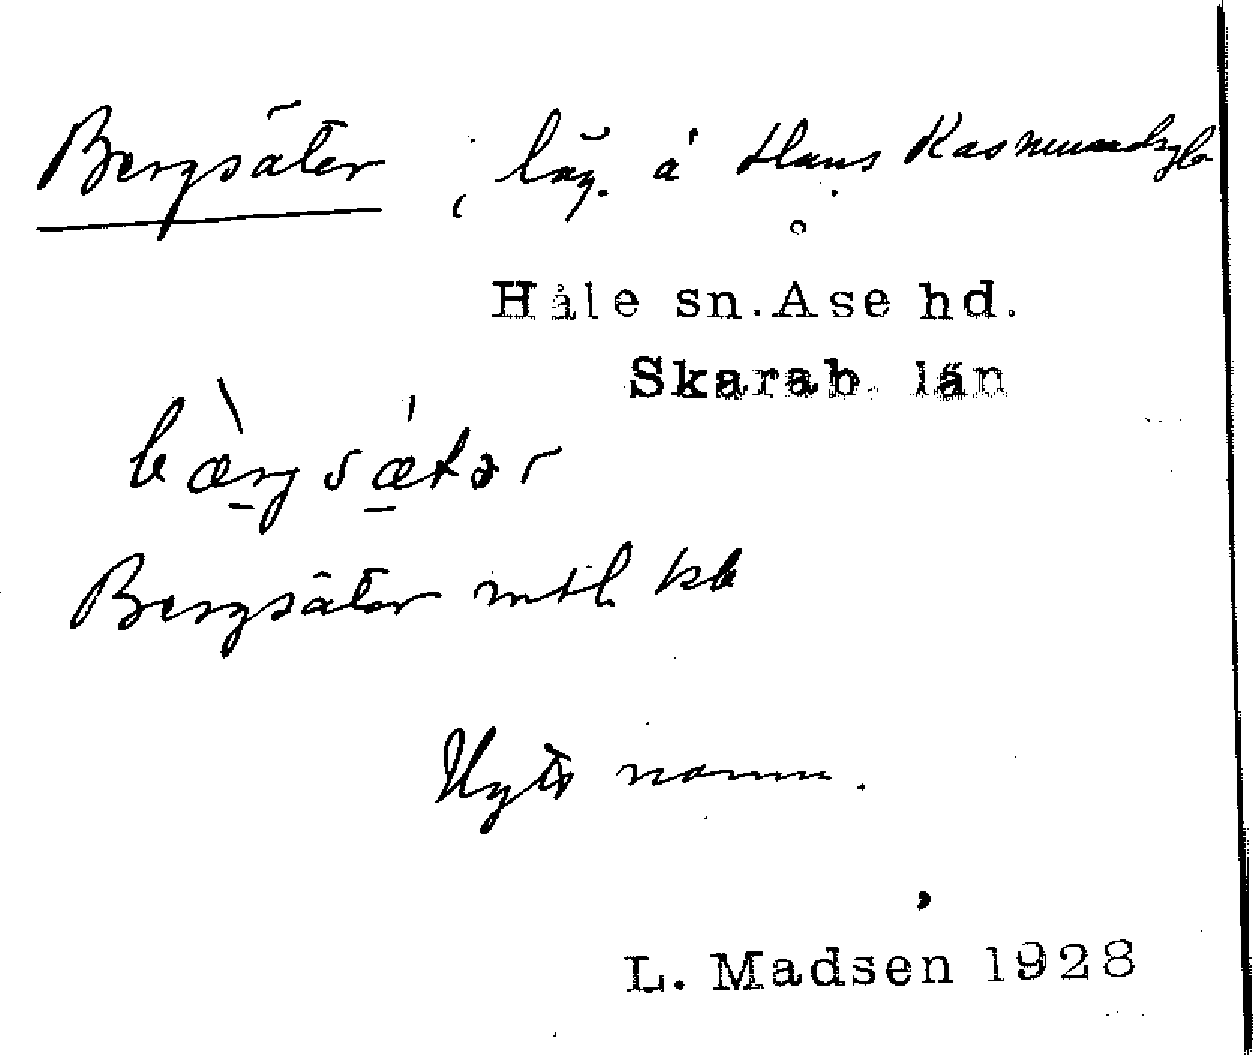 Bergsäter, läg. å Hans Rasmundsgb
Håle sn. Åse hd.
Skarab. län
bæ̀rjsǽtər
Bergsäter mtl kb
Nytt namn.
L. Madsen 1928